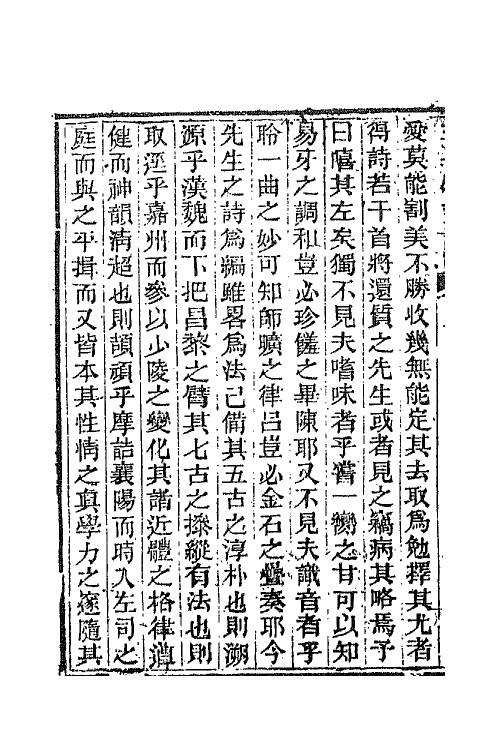 愛莫能割美不勝收幾無能定其去取爲勉擇其尤者
得詩若干首將還質之先生或者見之竊病其略焉予
曰嘻其左矣獨不見夫嗜味者乎嘗一臠之甘可以知
易牙之調和豈必珍饈之畢陳耶又不見夫識音者乎
聆一曲之妙可知師曠之律呂豈必金石之疊奏耶今
先生之詩爲編雖畧爲法已備其五古之淳朴也則溯
源乎漢魏而下把昌黎之臂其七古之操縱有法也則
取逕乎嘉州而參以少陵之變化其諧近體之格律遒
健而神韻淸超也則頡頏乎摩詰襄陽而時入左司之
庭而與之平揖而又皆本其性情之眞學力之邃隨其